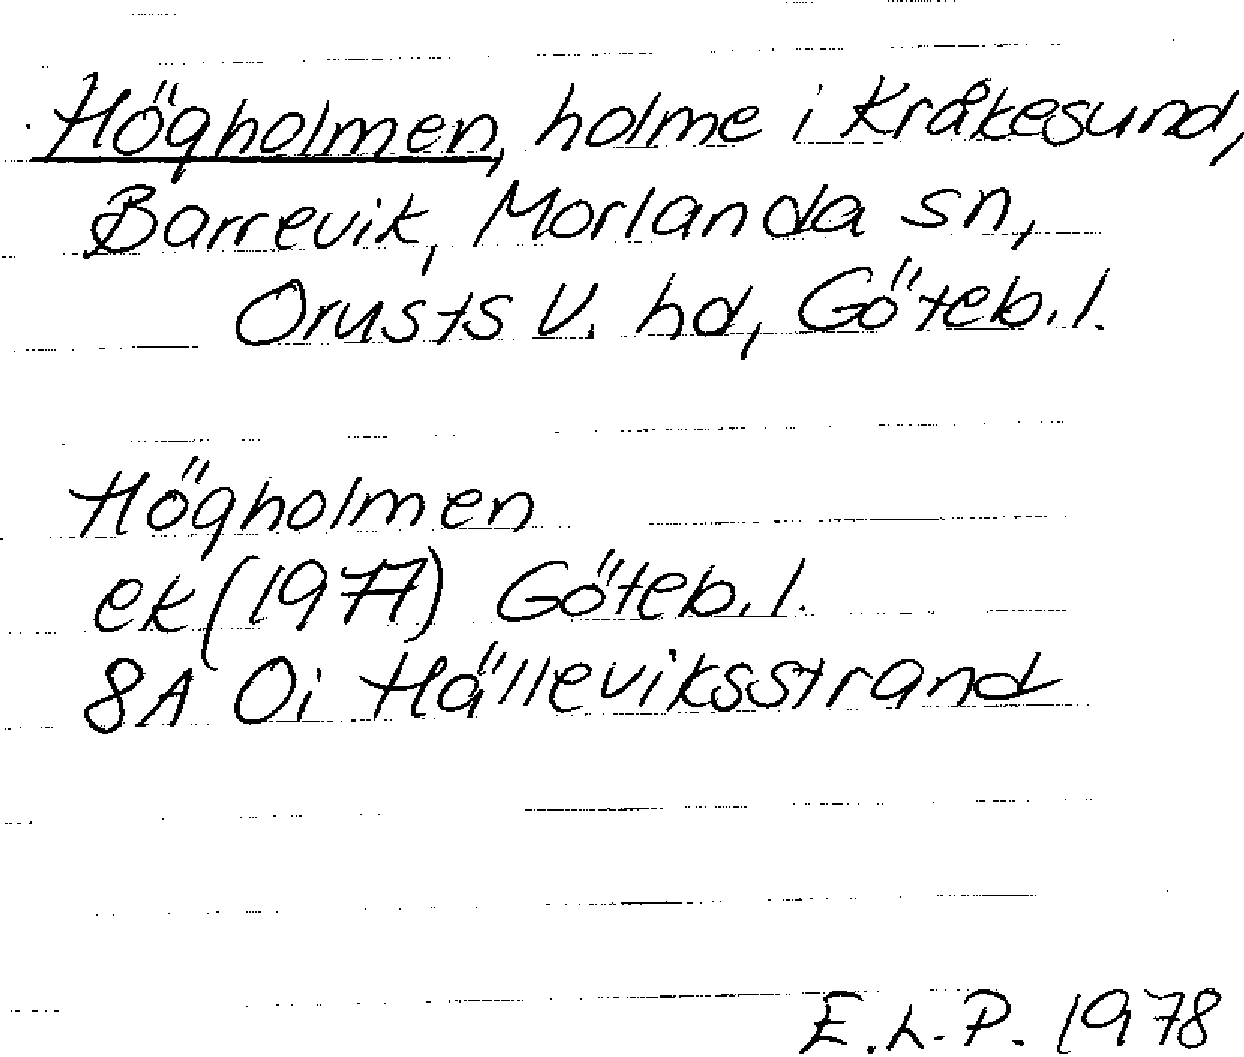 Högholmen, holme i Kråkesund,
Barrevik, Morlanda sn,
Orusts V. hd, Göteb. l.
Högholmen
ek (1977) Göteb. l.
8A 0i Hälleviksstrand
E.L.P. 1978